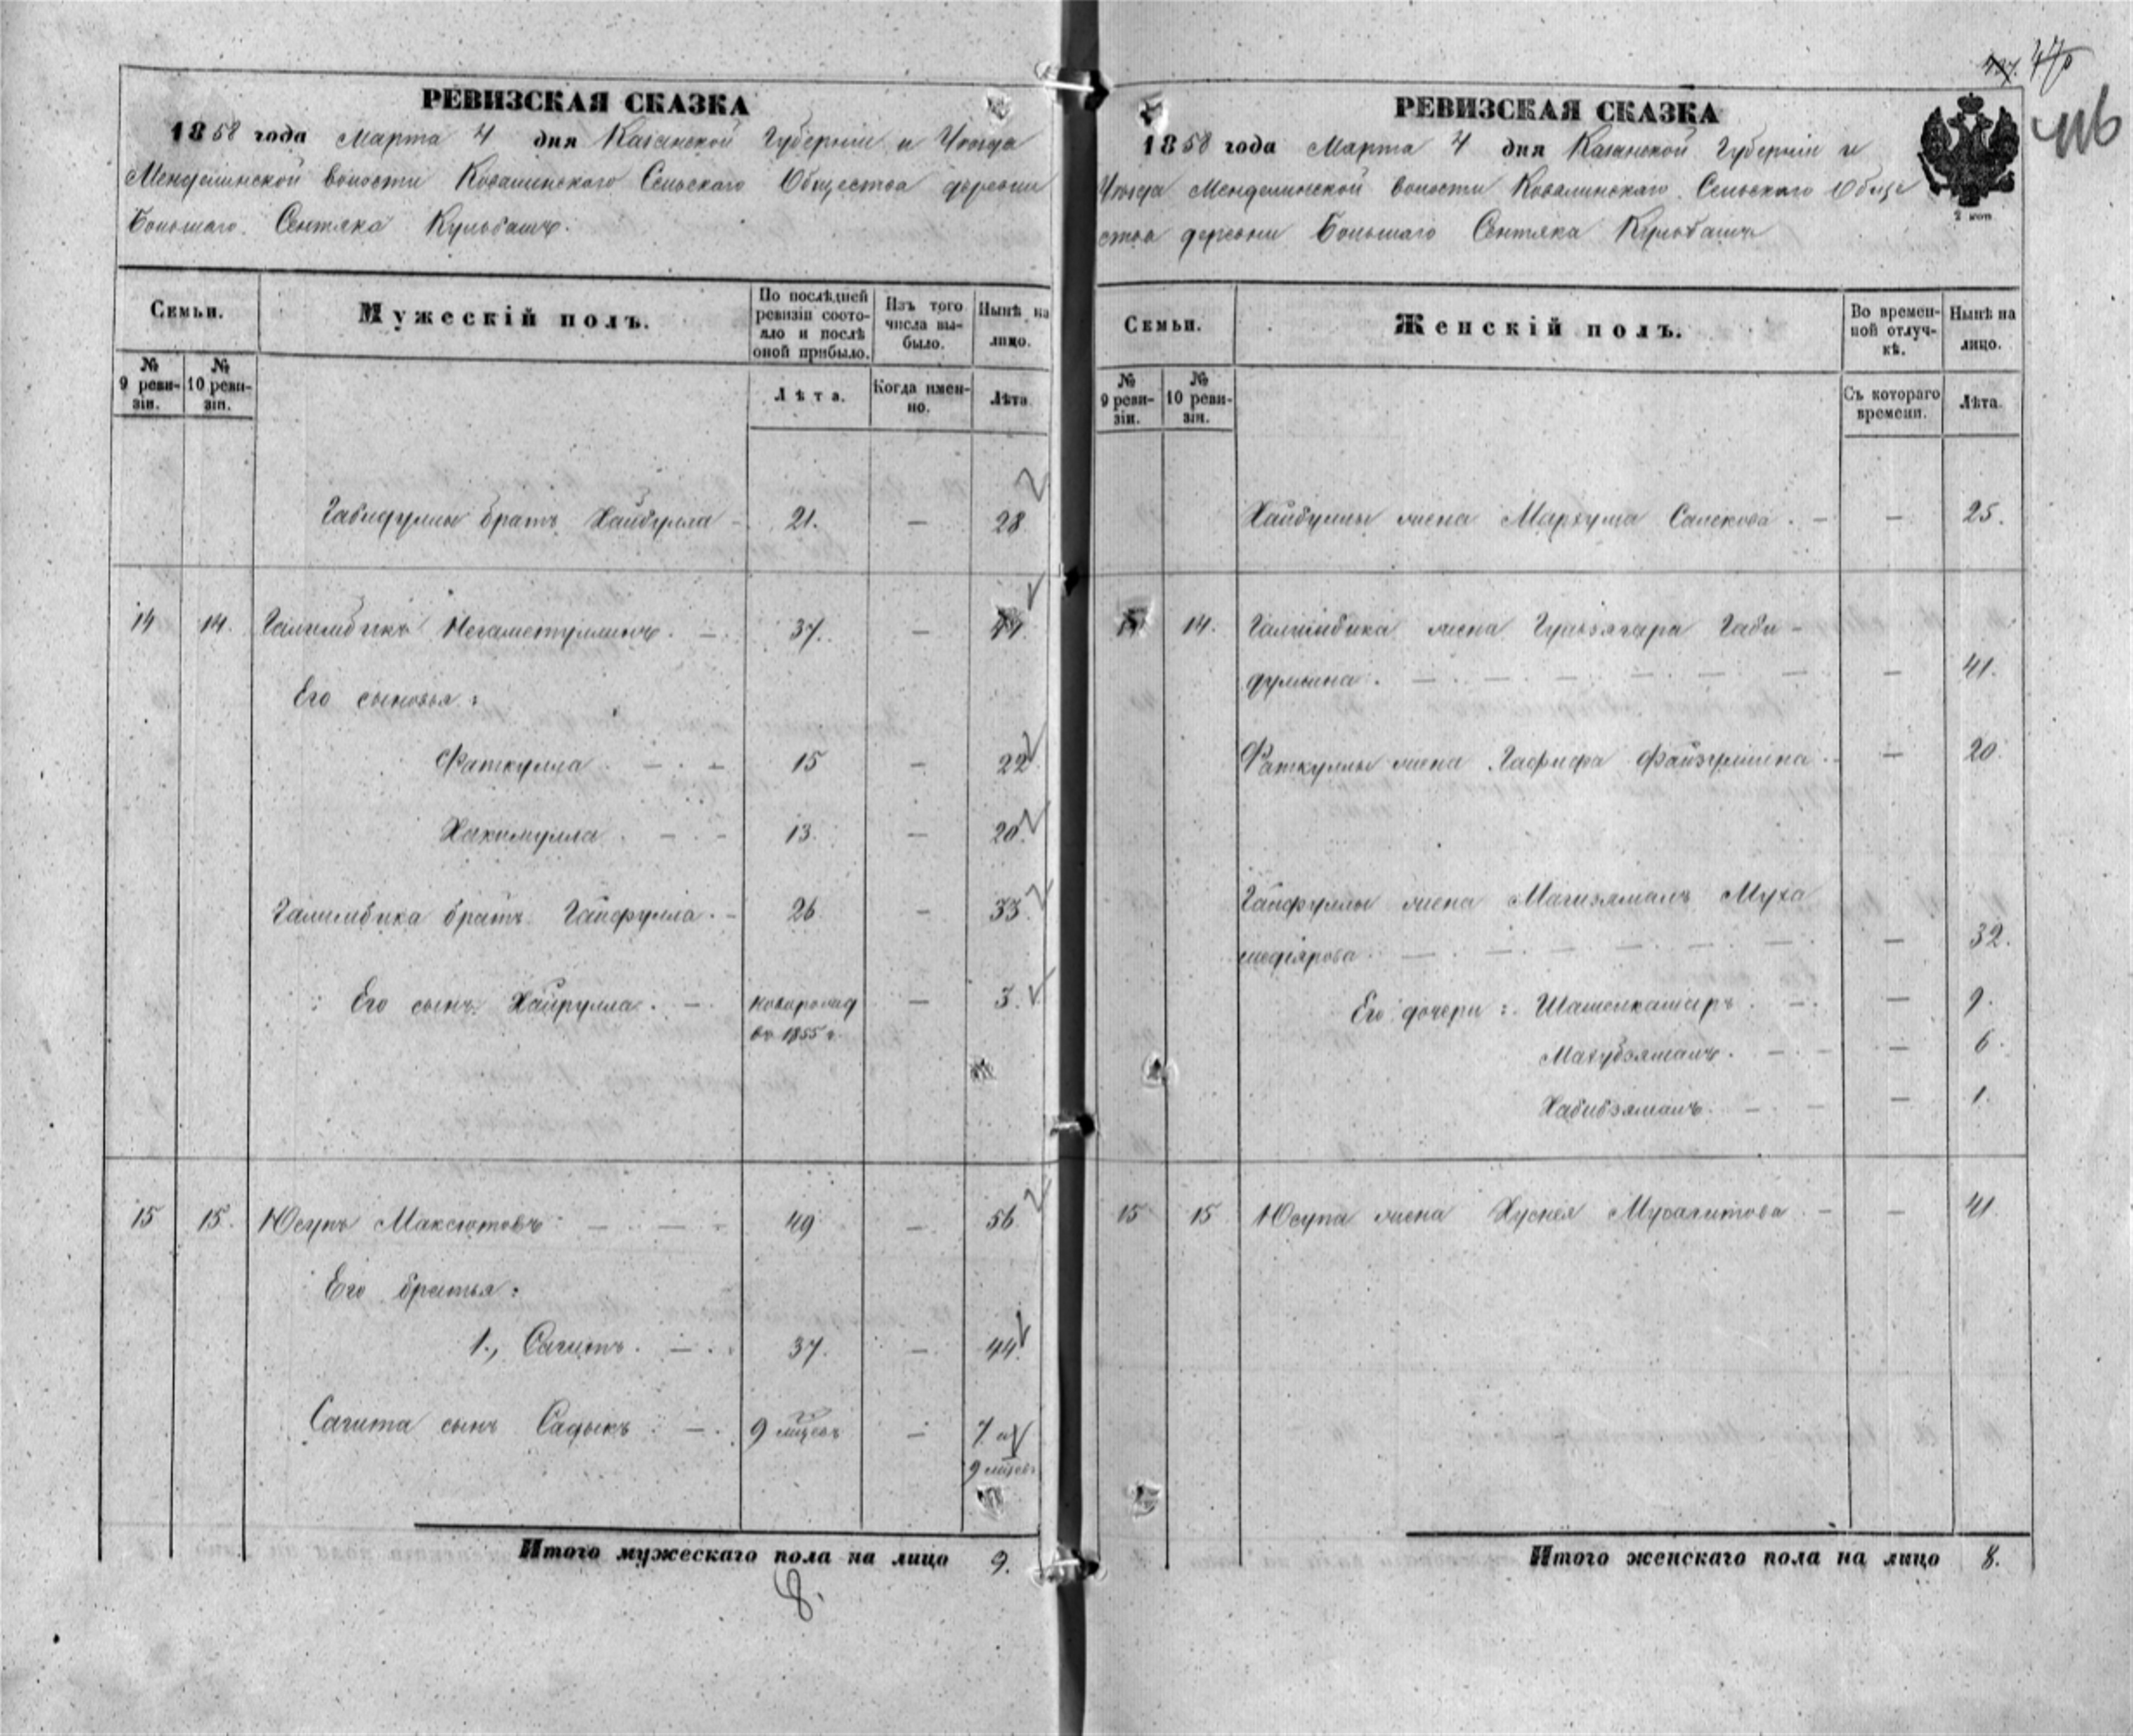 РЕВИЗСКАЯ СКАЗКА
1858 года Марта 4 дня Казанской Губерніи и Уѣзда
Менделинской волости Ковалинскаго Сельскаго Общества деревни
Большаго Сентяка Кульбашъ.
Семьи.
Мужескій полъ.
По послѣдней ревизіи состояло и послѣ оной прибыло.
Изъ того числа выбыло.
Нынѣ на лицо.
№ 9 ревизіи.
№ 10 ревизіи.
Лѣта.
Когда именно.
Лѣта.
Габидуллы братъ Хайбулла 21. — 28
14 14. Галимбекъ Негаметуллинъ. — 37. — 44.
Его сыновья:
Фаткулла — 15 — 22
Хакимулла — 13. — 20.
Галимбика братъ Гайфулла. — 26 — 33.
Его сынъ Хайрулла. — новорожд — 3.
въ 1855 г.
15 15. Юсупъ Максютовъ — 49 — 56
Его братья:
1., Сагитъ. — 37. — 44.
Сагита сынъ Садыкъ — 9 мѣсев — 7. и
9 мѣсев
Итого мужескаго пола на лицо 9.
8.
47
416
РЕВИЗСКАЯ СКАЗКА
1858 года Марта 4 дня Казанской Губерніи и
Уѣзда Менделинской волости Ковалинскаго Сельскаго Обще
ства деревни Большаго Сентяка Кульбашъ
2 коп
Семьи.
Женскій полъ.
Во временной отлучкѣ.
Нынѣ на лицо.
№ 9 ревизіи.
№ 10 ревизіи.
Съ котораго времени.
Лѣта.
Хайбуллы жена Мархуща Салекова. — — 25.
14 14. Галимбика жена Гульзягара Габи-
дуллина. — — 41.
Фаткуллы жена Гафифа Файзуллина — 20.
Гайфуллы жена Магизямалъ Муха
медіярова — — 32.
Его дочери: Шамсикамаръ. — — 9.
Махубзямалъ. — — 6.
Хабибзямалъ. — — 1.
15 15 Юсупа жена Хуснея Мусагитова — — 41
Итого женскаго пола на лицо 8.